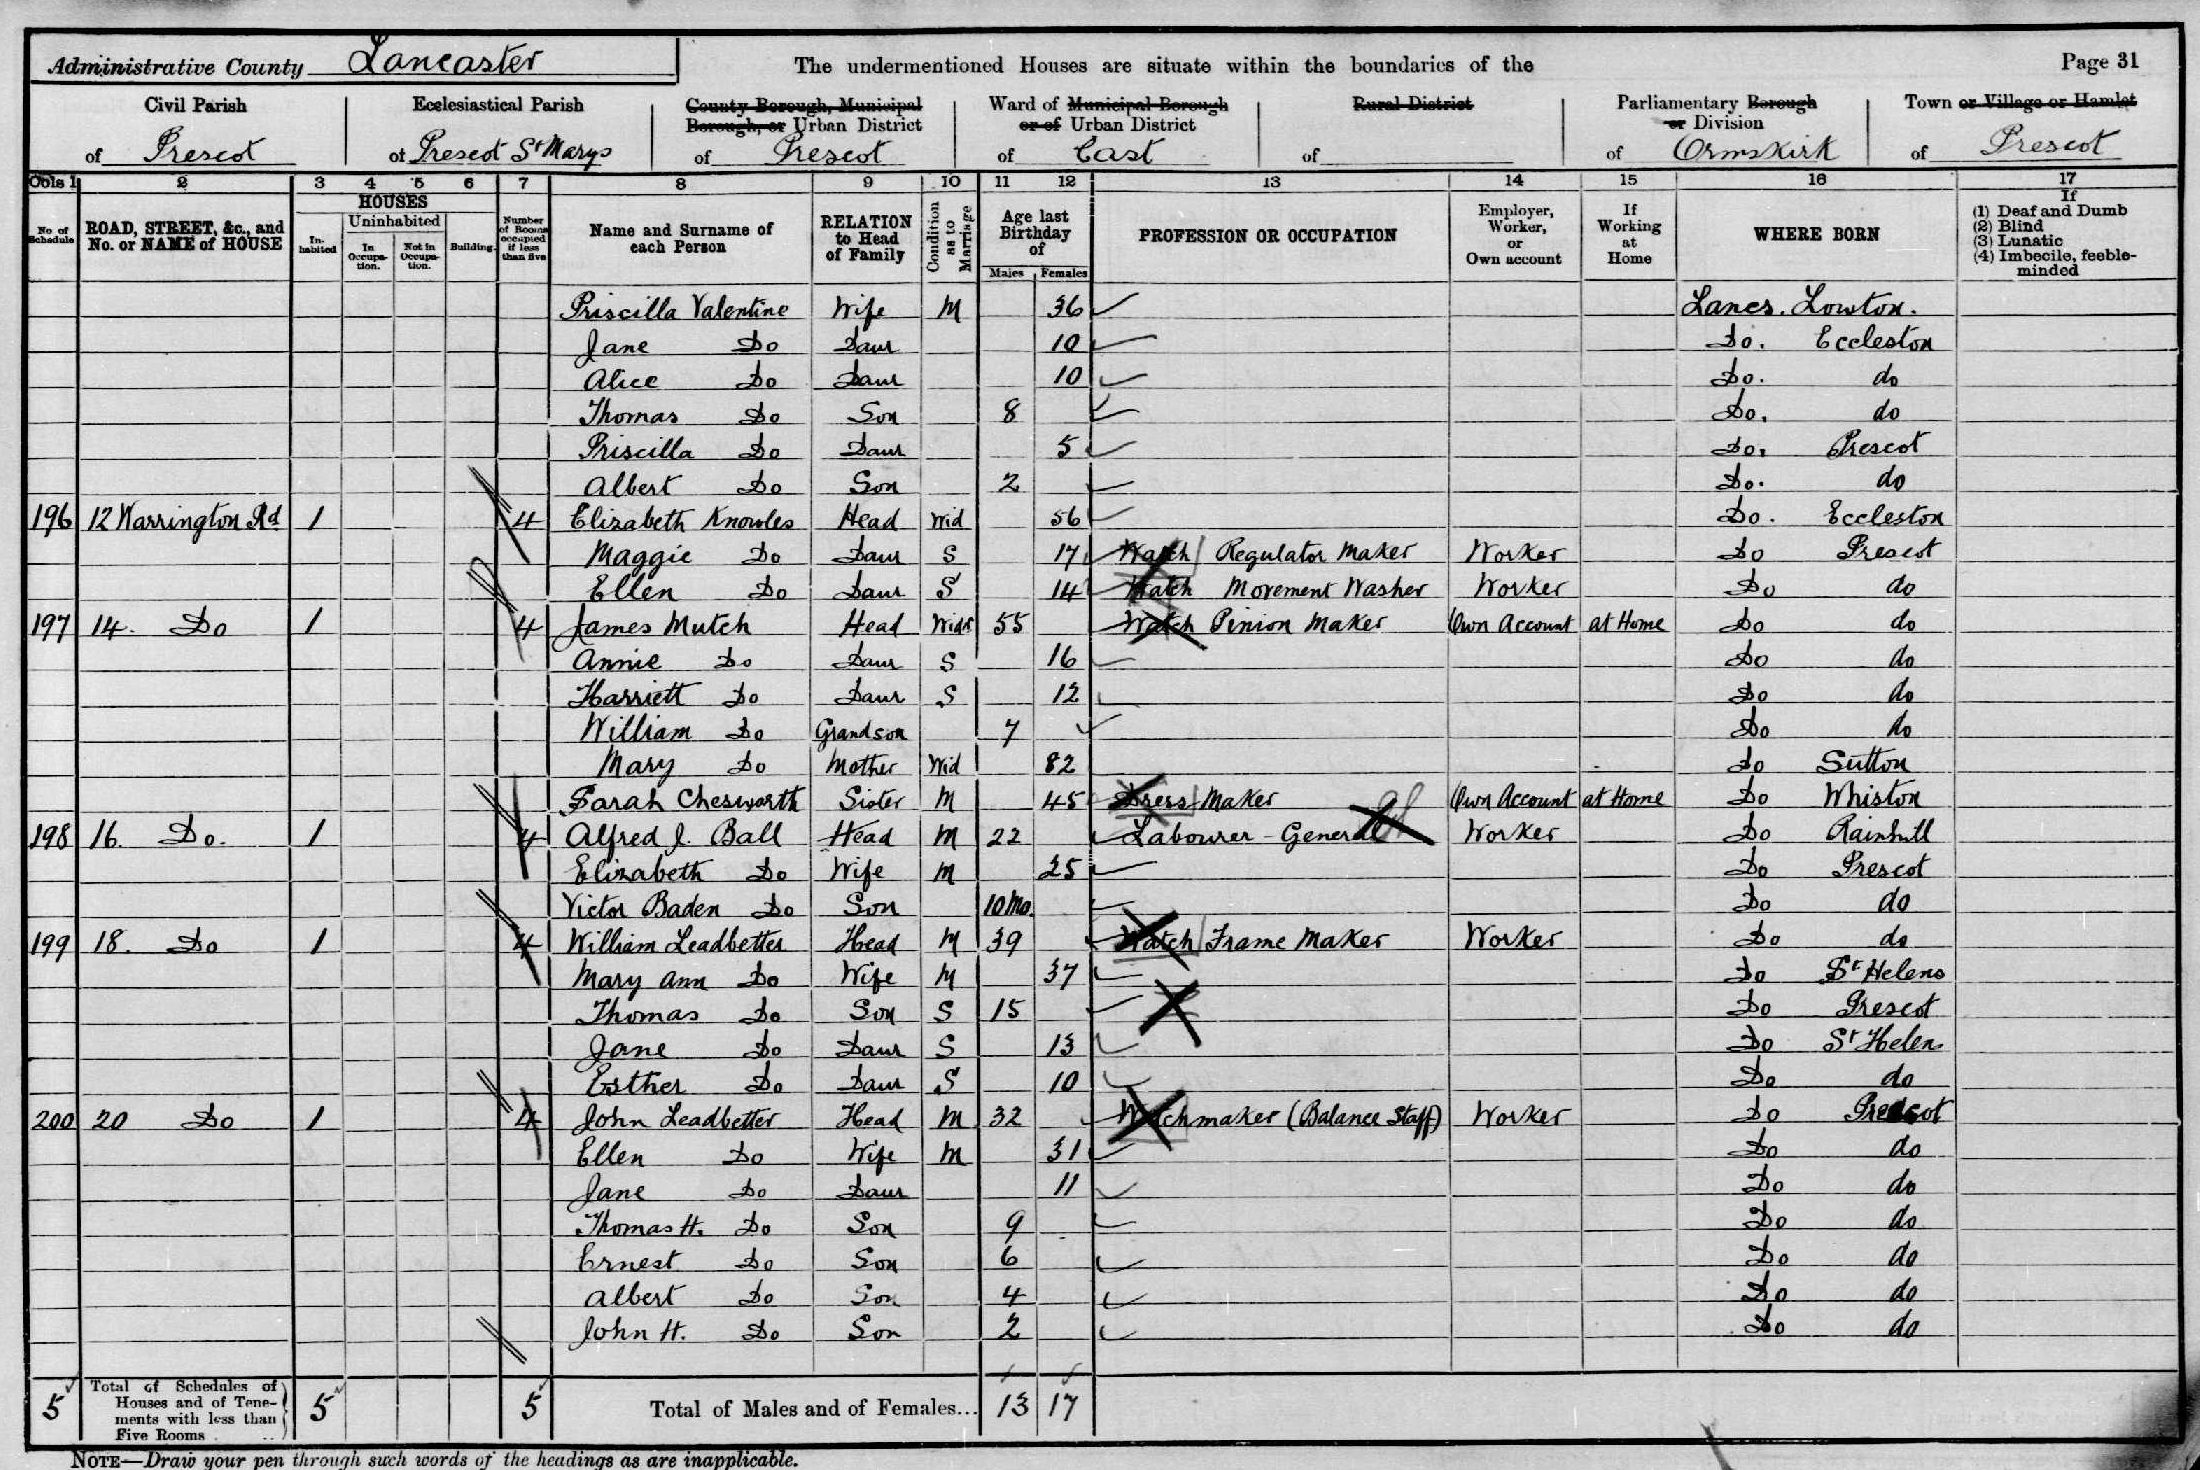 Administrative County Lancaster
The undermentioned Houses are situate within the boundaries of the
Page 31
Civil Parish
of Prescot
Ecclesiastical Parish
of Prescot St Marys
County Borough, Municipal
Borough, or Urban District
of Prescot
Ward of Municipal Borough
or of Urban District
of East
Rural District
of
Parliamentary Borough
or Division
of Ormskirk
Town or Village or Hamlet
of Prescot
Cols 1 2 3 4 5 6 7 8 9 10 11 12 13 14 15 16 17
No. of Schedule
ROAD, STREET, &c., and
No. or NAME of HOUSE
HOUSES
In-habited
Uninhabited
In Occupa-tion.
Not in Occupa-tion.
Building.
Number of Rooms occupied if less than five
Name and Surname of
each Person
RELATION
to Head
of Family
Condition as to Marriage
Age last
Birthday
of
Males Females
PROFESSION OR OCCUPATION
Employer,
Worker,
or
Own account
If
Working
at
Home
WHERE BORN
If
(1) Deaf and Dumb
(2) Blind
(3) Lunatic
(4) Imbecile, feeble-
minded
Priscilla Valentine Wife M 36 Lancs. Lowton.
Jane Do Daur 10 Do. Eccleston
Alice Do Daur 10 Do. do
Thomas Do Son 8 Do. do
Priscilla Do Daur 5 Do. Prescot
Albert Do Son 2 Do. do
196 12 Warrington Rd 1 4 Elizabeth Knowles Head Wid 56 Do. Eccleston
Maggie Do Daur S 17 Watch Regulator Maker Worker Do Prescot
Ellen Do Daur S 14 Watch Movement Washer Worker Do do
197 14. Do 1 4 James Mutch Head Widr 55 Watch Pinion Maker Own Account at Home Do do
Annie Do Daur S 16 Do do
Harriett Do Daur S 12 Do do
William Do Grandson 7 Do do
Mary Do Mother Wid 82 Do Sutton
Sarah Chesworth Sister M 45 Dress Maker Own Account at Home Do Whiston
198 16. Do. 1 4 Alfred J. Ball Head M 22 Labourer - General Worker Do Rainhill
Elizabeth Do Wife M 25 Do Prescot
Victor Baden Do Son 10 Mo. Do do
199 18. Do 1 4 William Leadbetter Head M 39 Watch Frame Maker Worker Do do
Mary Ann Do Wife M 37 Do St Helens
Thomas Do Son S 15 Do Prescot
Jane Do Daur S 13 Do St Helens
Esther Do Daur S 10 Do do
200 20 Do 1 4 John Leadbetter Head M 32 Watchmaker (Balance Staff) Worker Do Prescot
Ellen Do Wife M 31 Do do
Jane Do Daur 11 Do do
Thomas H. Do Son 9 Do do
Ernest Do Son 6 Do do
Albert Do Son 4 Do do
John H. Do Son 2 Do do
5 Total of Schedules of
Houses and of Tene-
ments with less than
Five Rooms .. 5 5 Total of Males and of Females... 13 17
NOTE—Draw your pen through such words of the headings as are inapplicable.